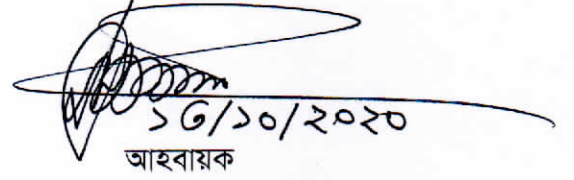 ১৫/১০/২০২০
আহবায়ক